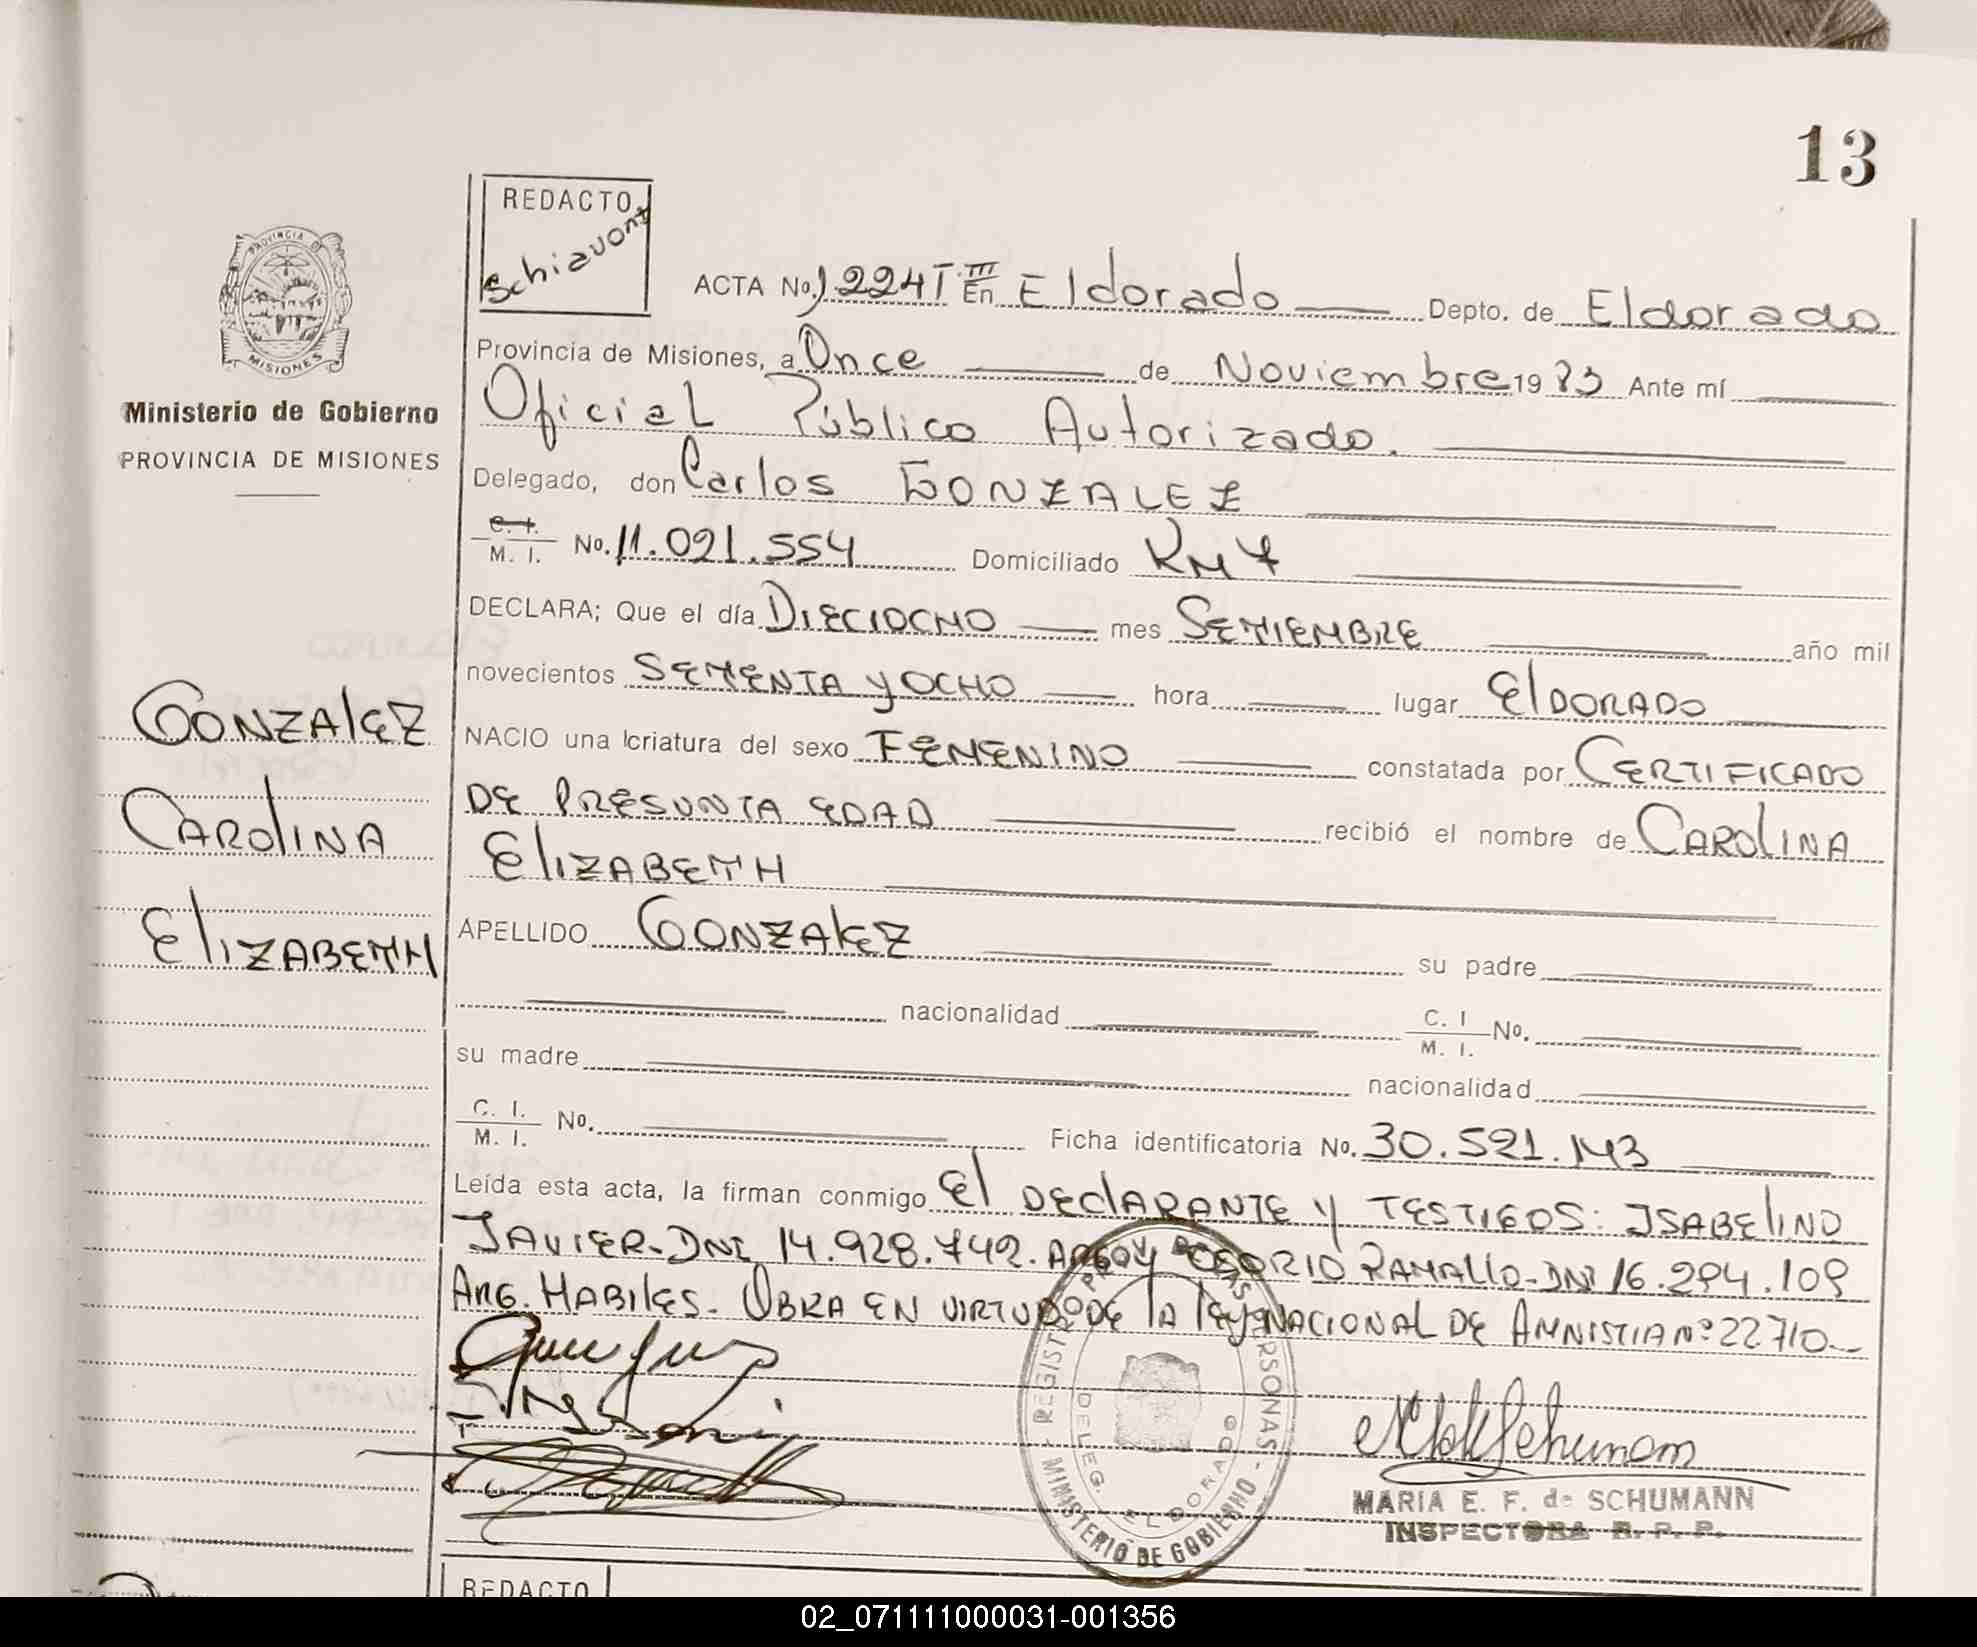 13
REDACTO
Schiavoni
PROVINCIA DE
MISIONES
Ministerio de Gobierno
PROVINCIA DE MISIONES
GONZALEZ
CAROLINA
ELIZABETH
ACTA No. 1224 T III En Eldorado Depto. de Eldorado
Provincia de Misiones, a Once de Noviembre 19 83 Ante mí
Oficial Público Autorizado.
Delegado, don Carlos GONZALEZ
C. I. M. I. No. 11.021.554 Domiciliado KM 7
DECLARA; Que el día DIECIOCHO mes SETIEMBRE año mil
novecientos SETENTA y OCHO hora lugar ElDORADO
NACIO una criatura del sexo FEMENINO constatada por CERTIFICADO
DE PRESUNTA EDAD recibió el nombre de CAROLINA
ELIZABETH
APELLIDO GONZALEZ su padre
nacionalidad C. I M. I. No.
su madre nacionalidad
C. I. M. I. No. Ficha identificatoria No. 30.521.143
Leída esta acta, la firman conmigo El DECLARANTE Y TESTIGOS: ISABELINO
JAVIER-DNI 14.928.742. ARG. y OSORIO RAMALLO-DNI 16.294.109
ARG. HABILES. OBRA EN VIRTUD DE LA LEY NACIONAL DE AMNISTIA Nº 22710
REGISTRO PROV. DE LAS PERSONAS
MINISTERIO DE GOBIERNO
DELEG. ELDORADO
MARIA E. F. de SCHUMANN
INSPECTORA R. P. P.
REDACTO
02_071111000031-001356